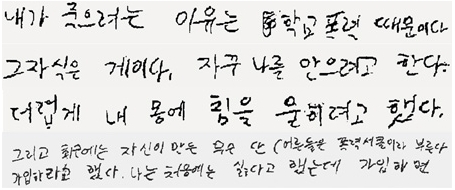 내가 죽으려는 이유는 학교 폭력 때문이다
그자식은 게이다. 자꾸 나를 안으려고 한다.
더럽게 내 몸에 힘을 묻히려고 했다.
그리고 최근에는 자신이 만든 무슨 단 (어른들은 폭력서클이라 부른다
가입하라고 했다. 나는 처음에는 싫다고 했는데 가입하면